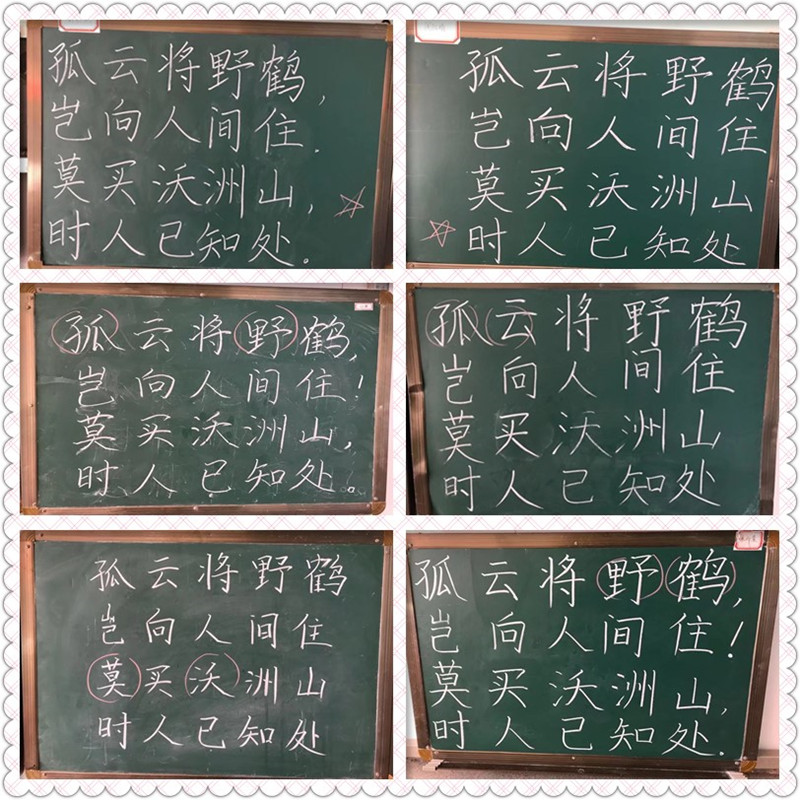 孤云将野鹤,
岂向人间住.
莫买沃洲山,
时人已知处.
孤云将野鹤
岂向人间住
莫买沃洲山
时人已知处
孤云将野鹤,
岂向人间住!
莫买沃洲山,
时人已知处。
孤云将野鹤
岂向人间住
莫买沃洲山
时人已知处
孤云将野鹤
岂向人间住
莫买沃洲山
时人已知处
孤云将野鹤,
岂向人间住!
莫买沃洲山,
时人已知处.